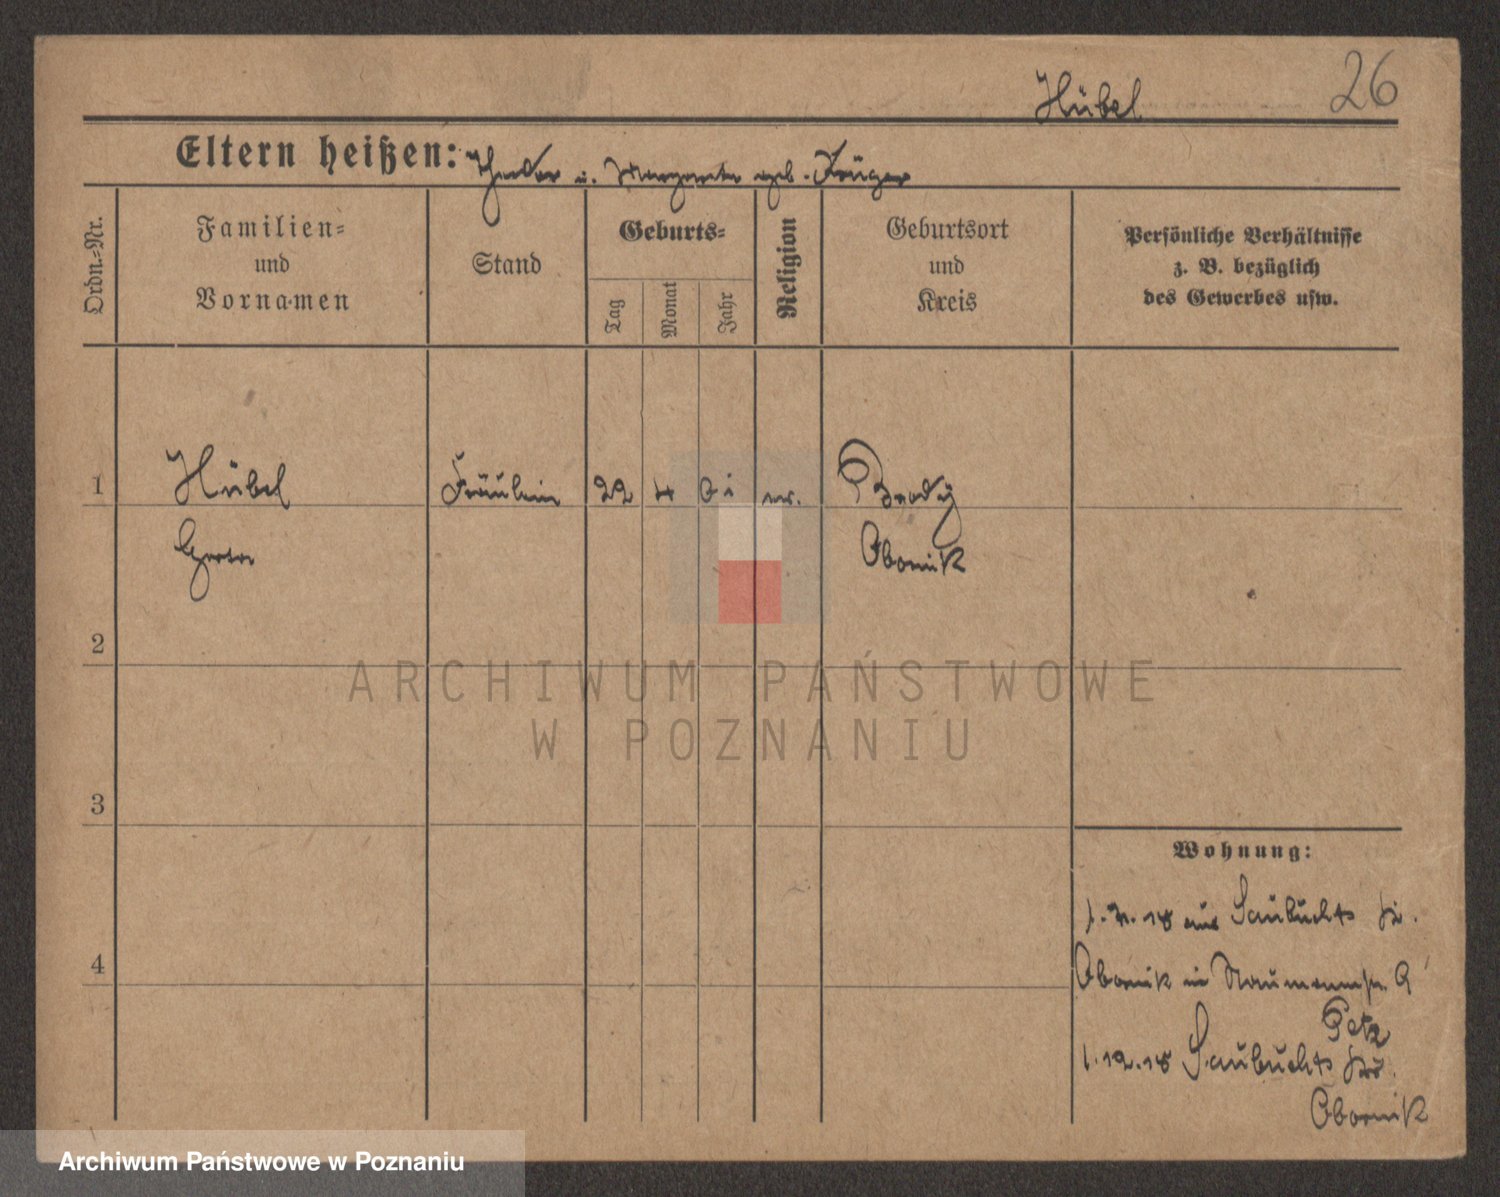 26
Hübel
Eltern heißen: Theodor u. Margarete geb. Krüger
Ordn.-Nr.
Familien-
und
Vornamen
Stand
Geburts-
Tag
Monat
Jahr
Religion
Geburtsort
und
Kreis
Persönliche Verhältnisse
z. B. bezüglich
des Gewerbes usw.
1
Hübel
Fräulein
22
4
01
ev.
Brody
Grete
Obornik
2
3
4
Wohnung:
1.7.18 aus Saubuchts Kr.
Obornik in Naumannstr. 9
Petz
1.12.18 Saubuchts Kr.
Obornik
ARCHIWUM PAŃSTWOWE
W POZNANIU
Archiwum Państwowe w Poznaniu